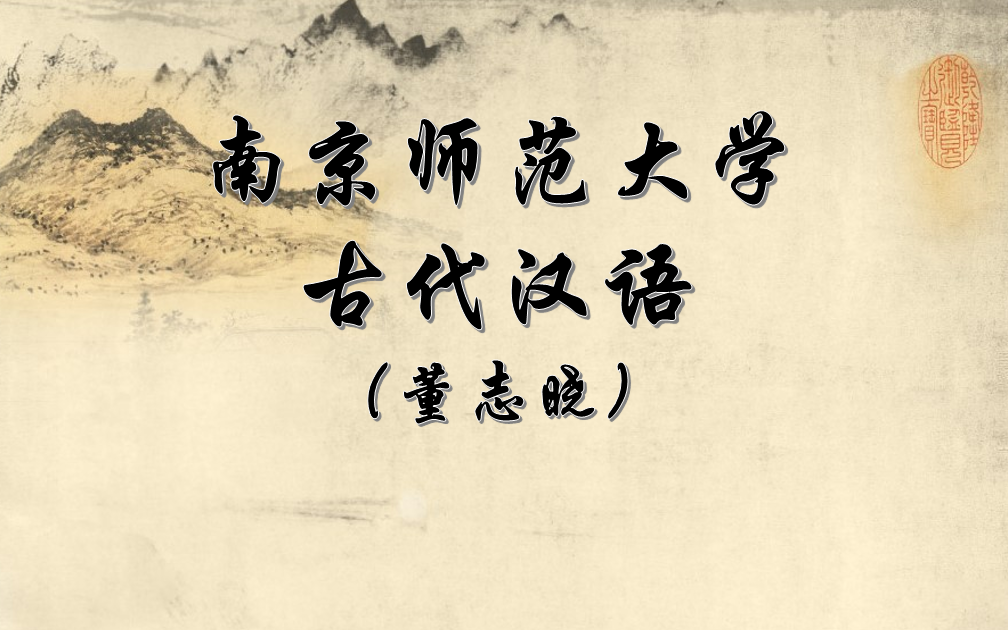 南京师范大学
古代汉语
（董志晓）